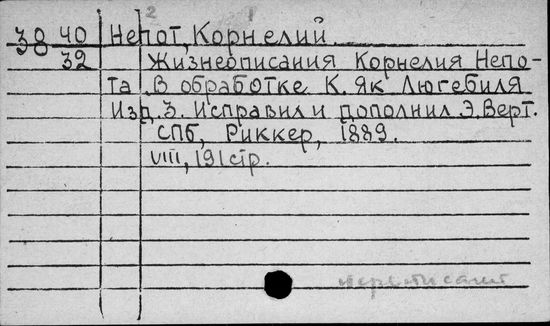 2 1
38 40 Непот, Корнелий
32 Жизнеописания Корнелия Непо-
та в обработке К. Як Люгебиля
Изд. 3. Исправил и дополнил Э. Верт.
СПб, Риккер, 1889.
VIII, 191 стр.